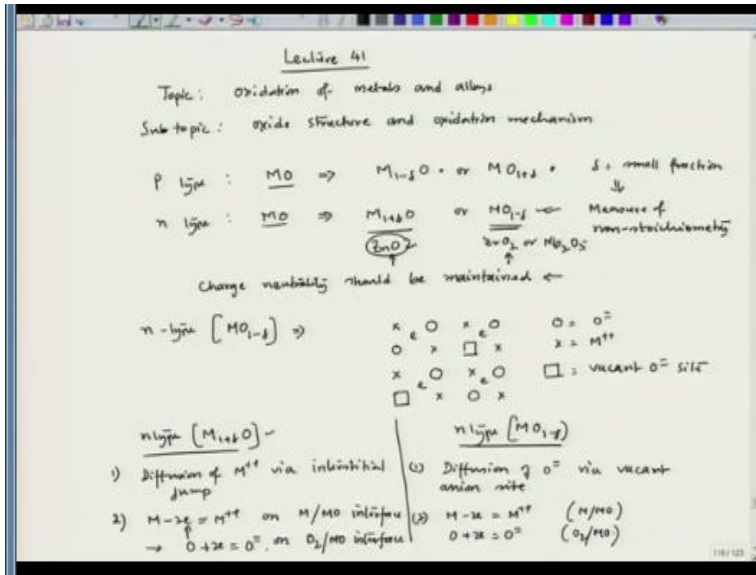 Lecture 41
Topic: oxidation of metals and alloys
Sub topic: oxide structure and oxidation mechanism
P type : MO ⇒ M1-δO or MO1+δ δ = small fraction
⇓
n type : MO ⇒ M1+δO or MO1-δ ← Measure of non-stoichiometry
ZnO ZrO2 or Nb2O5
↑ ↑
Charge neutrality should be maintained ←
n-type [MO1-δ] ⇒ x O x O O = O=
e e
O x □ x x = M++
x O x O □ = vacant O= site
e e
□ x O x
n type [M1+δO] -
1) Diffusion of M++ via interstitial jump
2) M-2e = M++ on M/MO interface
→ O+2e = O= on O2/MO interface
n type [MO1-δ]
(1) Diffusion of O= via vacant anion site
(2) M-2e = M++ (M/MO)
O+2e = O= (O2/MO)